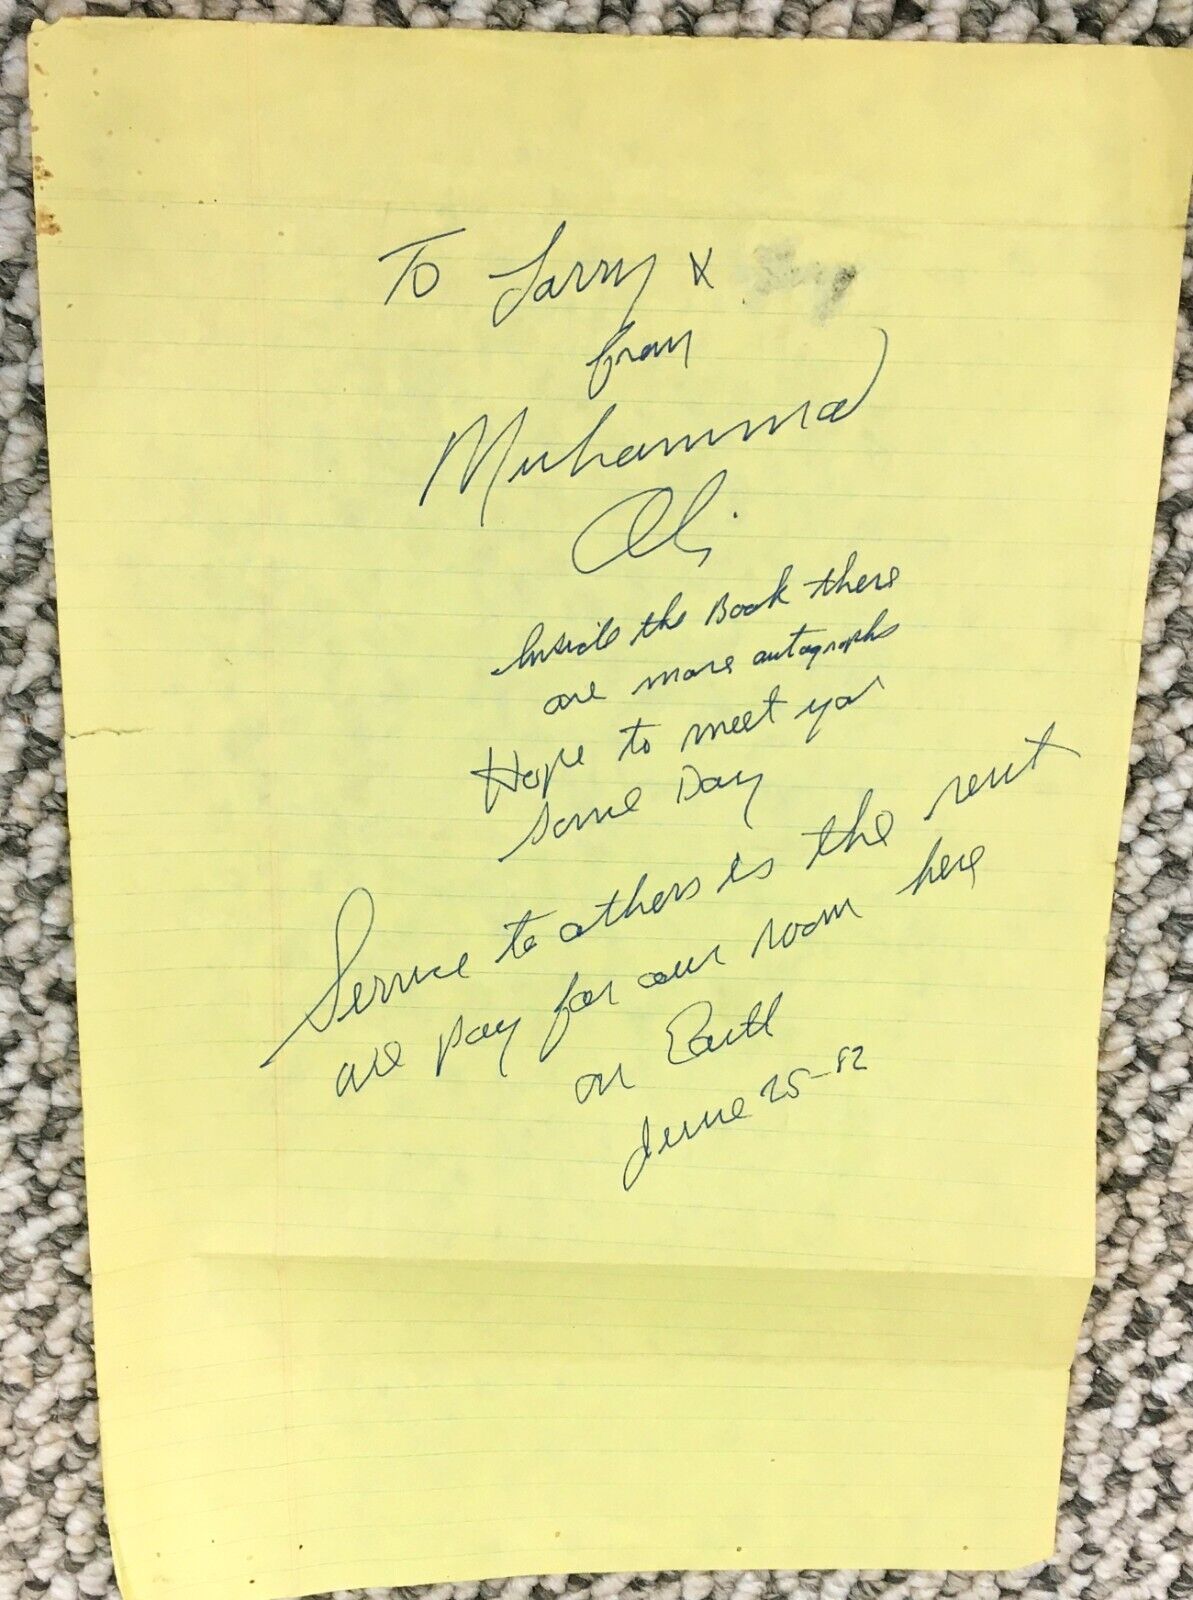 To Larry &
from
Muhammad
Ali
Inside the Book there
are more autographs
Hope to meet you
some Day
Service to others is the rent
we pay for our room here
on Earth
June 25-82